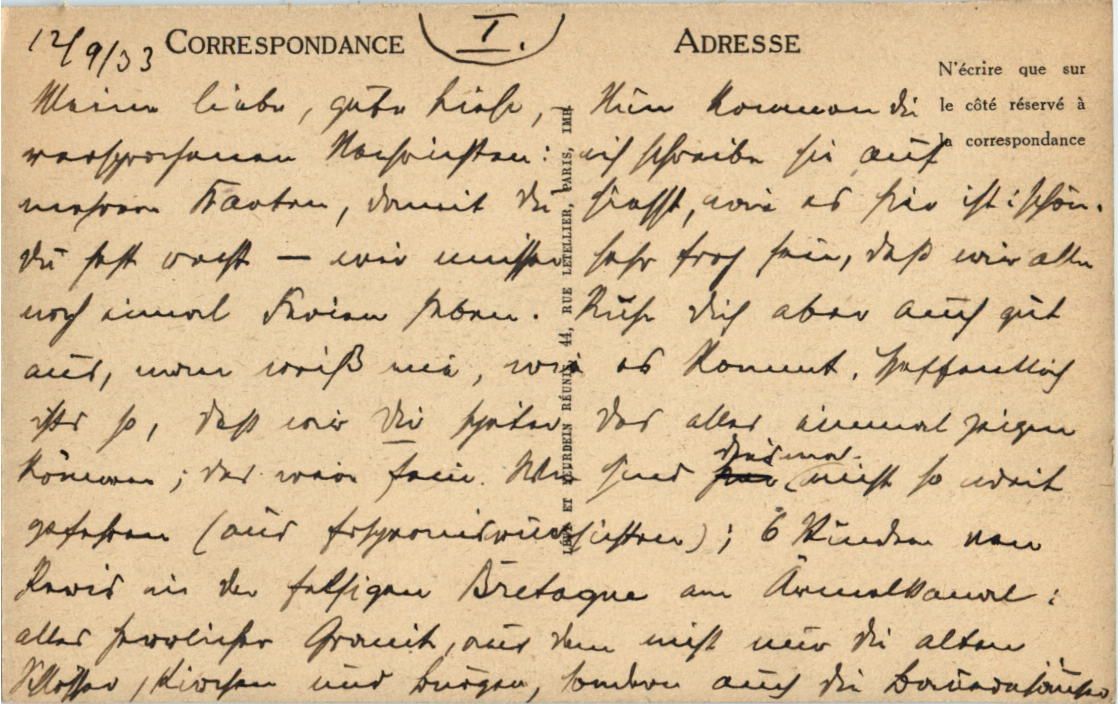 12/9/33 CORRESPONDANCE I. ADRESSE
N'écrire que sur
le côté réservé à
la correspondance
LÉVY ET NEURDEIN RÉUNIS, 44, RUE LETELLIER, PARIS, IMP.
Meine liebe, gute Liese, – Nun kommen die
versprochenen Nachrichten: ich schreibe sie auf
mehrere Karten, damit Du siehst, wie es hier ist: schön.
Du hast recht — wir müssen sehr froh sein, daß wir alle
noch einmal Ferien haben. Ruhe Dich aber auch gut
aus, man weiß nie, wie es kommt. Hoffentlich
ists so, daß wir Dir später das alles einmal zeigen
können; das wär fein. Wir sind diesmal nicht so weit
gefahren (aus Ersparnisrücksichten); 6 Stunden von
Paris in der felsigen Bretagne am Ärmelkanal:
alles herrlicher Granit, aus dem nicht nur die alten
Schlösser, Kirchen und Burgen, sondern auch die Bauernhäuser